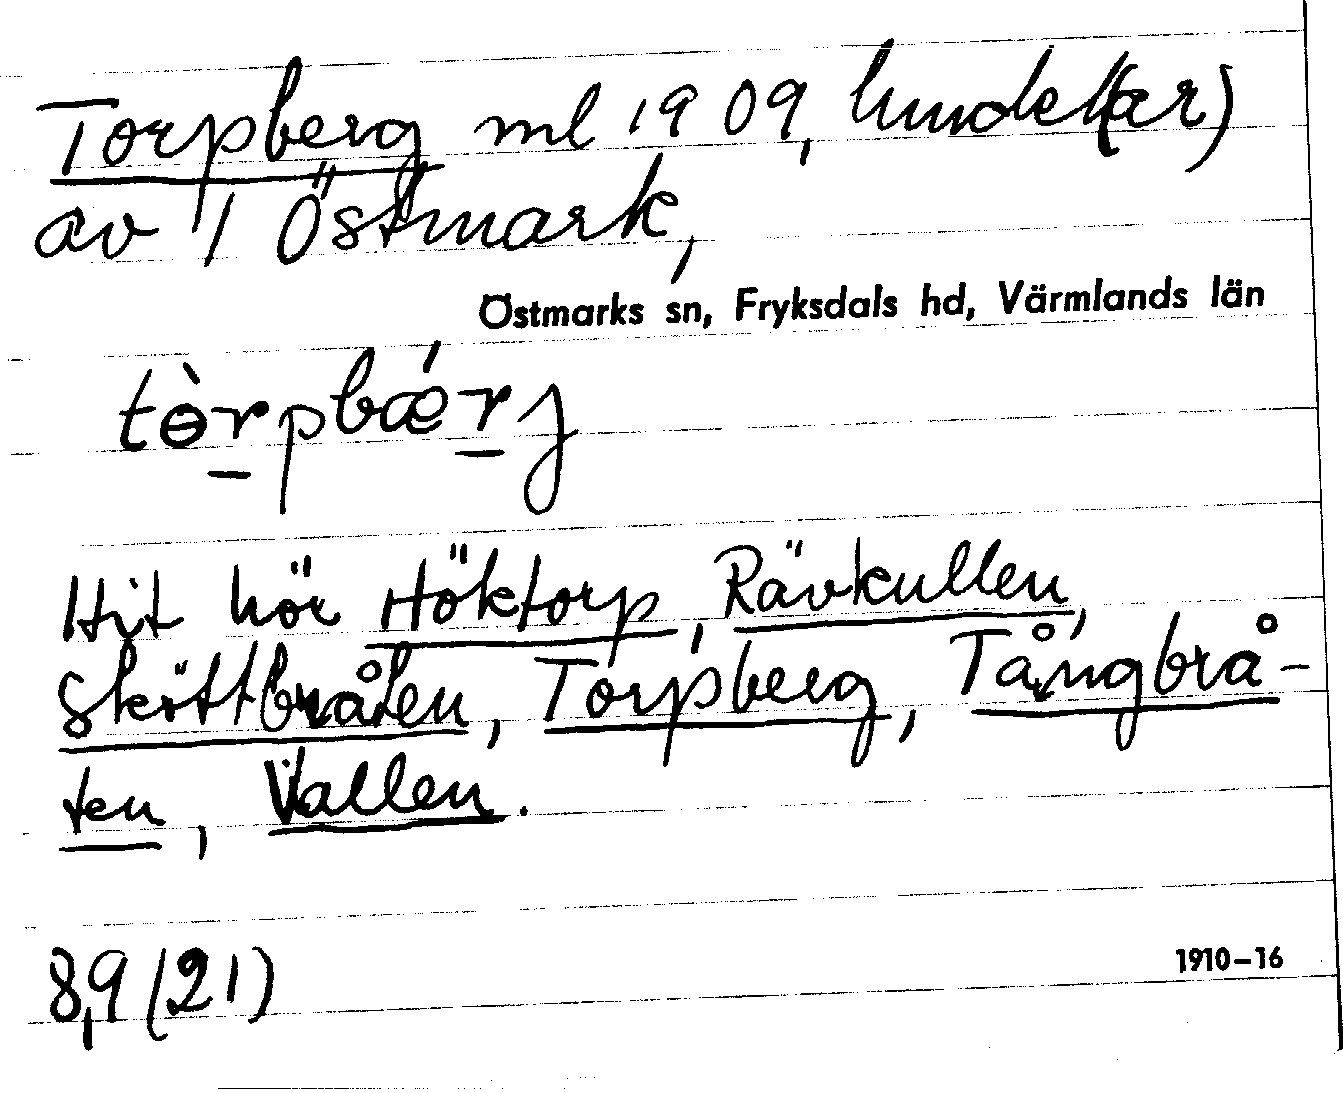 Torpberg ml 1909, lundel(ar)
av 1 Östmark,
Östmarks sn, Fryksdals hd, Värmlands län
tɵ̀rpbǽrj
Hit hör Höktorp, Rävkullen,
Sköttbråten, Torpberg, Tångbrå-
ten, Vallen.
8,9 (21)
1910–16